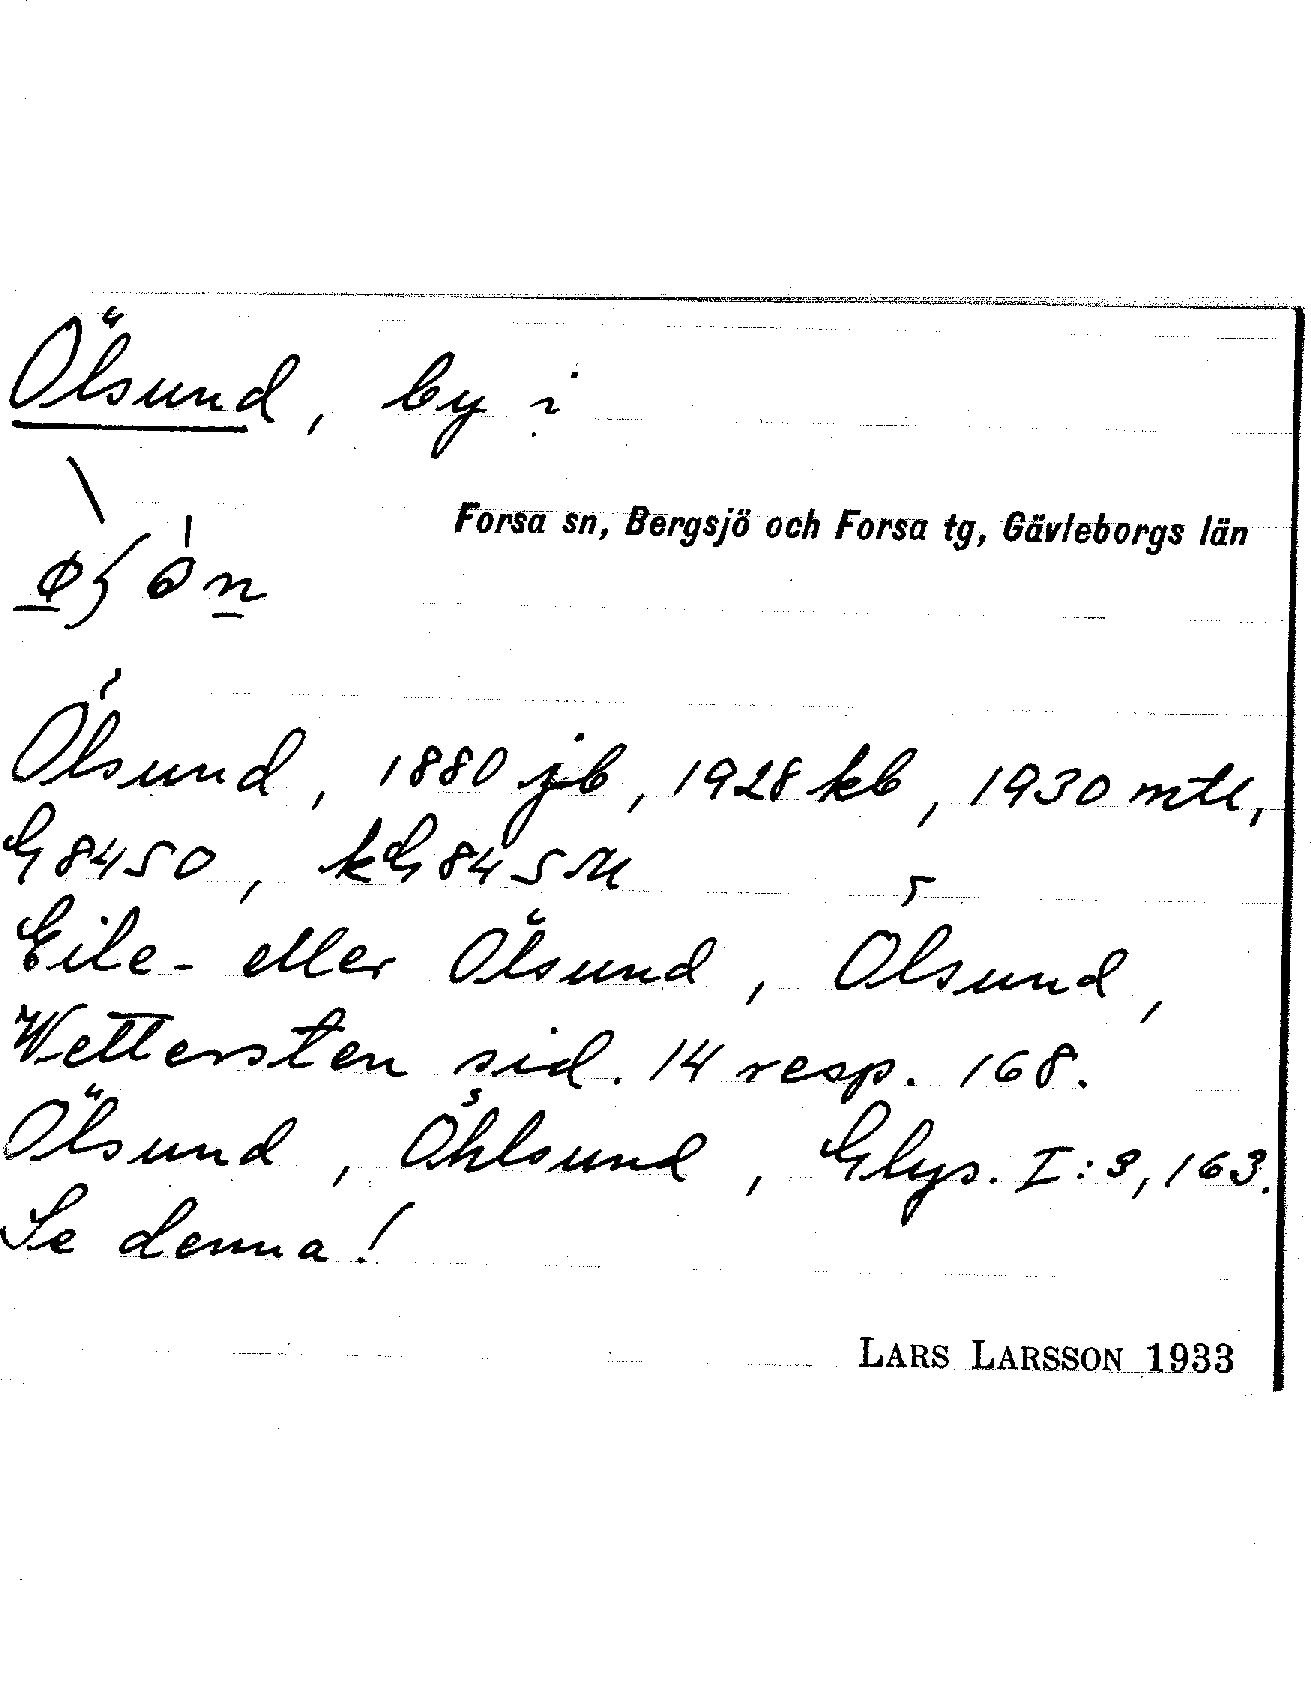 Ölsund, by i
Forsa sn, Bergsjö och Forsa tg, Gävleborgs län
Ölsund, 1880 jb, 1928 kb, 1930 mtl,
G 84 SO, kG 84 SM
Eile- eller Ölsund, Ölsund,
Wettersten sid. 14 resp. 168.
Ölsund, Öhlsund, Glys. I:3, 163.
Se denna!
LARS LARSSON 1933